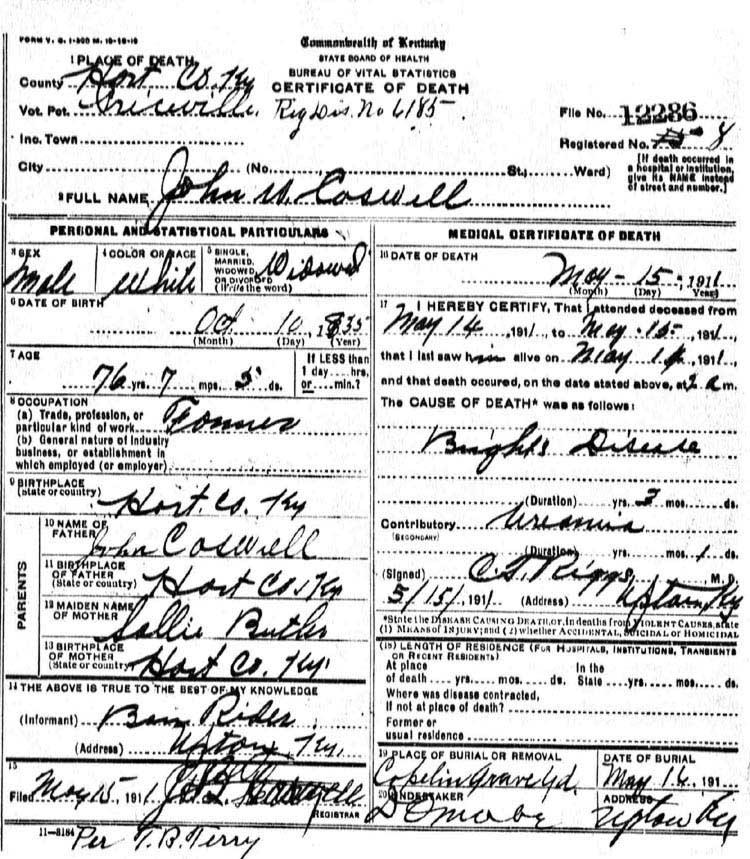 FORM V. S. 1-500 M. 10-18-10
Commonwealth of Kentucky
STATE BOARD OF HEALTH
BUREAU OF VITAL STATISTICS
CERTIFICATE OF DEATH
1 PLACE OF DEATH
County Hart Co. Ky
Vot. Pct. Priceville Reg Dis. No 6185
File No. 12286
Inc. Town
Registered No. 8
City (No. St.; Ward)
[If death occurred in a hospital or institution, give its NAME instead of street and number.]
2 FULL NAME John W Coswell
PERSONAL AND STATISTICAL PARTICULARS
3 SEX Male
4 COLOR OR RACE White
5 SINGLE, MARRIED, WIDOWED OR DIVORCED (Write the word) Widowed
6 DATE OF BIRTH
Oct 10 1835
(Month) (Day) (Year)
7 AGE
76 yrs. 7 mos. 5 ds.
If LESS than 1 day.... hrs. or.... min.?
8 OCCUPATION
(a) Trade, profession, or particular kind of work Farmer
(b) General nature of Industry business, or establishment in which employed (or employer)
9 BIRTHPLACE
(State or country) Hart. Co. Ky
PARENTS
10 NAME OF FATHER John Coswell
11 BIRTHPLACE OF FATHER (State or country) Hart Co. Ky
12 MAIDEN NAME OF MOTHER Sallie Butler
13 BIRTHPLACE OF MOTHER (State or country) Hart Co. Ky.
14 THE ABOVE IS TRUE TO THE BEST OF MY KNOWLEDGE
(Informant) Ben Rider
(Address) Upton Ky.
15
Filed May 15, 1911
REGISTRAR
11-3184
Per T. B. Terry
MEDICAL CERTIFICATE OF DEATH
16 DATE OF DEATH
May - 15, 1911
(Month) (Day) Year)
17 I HEREBY CERTIFY, That I attended deceased from
May 14, 1911, to May. 15, 1911,
that I last saw him alive on May 14, 1911,
and that death occured, on the date stated above, at 2 a m.
The CAUSE OF DEATH* was as follows:
Brights Disease
(Duration) yrs. 3 mos. ds.
Contributory Uremia
(SECONDARY)
(Duration) yrs. mos. 1 ds.
(Signed) C. T. Riggs, M. D.
5/15/, 1911 (Address) Upton Ky
*State the DISEASE CAUSING DEATH, or, in deaths from VIOLENT CAUSES, state
(1) MEANS OF INJURY; and (2) whether ACCIDENTAL, SUICIDAL OR HOMICIDAL
(18) LENGTH OF RESIDENCE (FOR HOSPITALS, INSTITUTIONS, TRANSIENTS OR RECENT RESIDENTS)
At place of death yrs. mos. ds. In the State yrs. mos. ds.
Where was disease contracted,
If not at place of death?
Former or
usual residence
19 PLACE OF BURIAL OR REMOVAL
Copelin Grave Yd.
DATE OF BURIAL
May 16, 191
20 UNDERTAKER
ADDRESS
Upton Ky